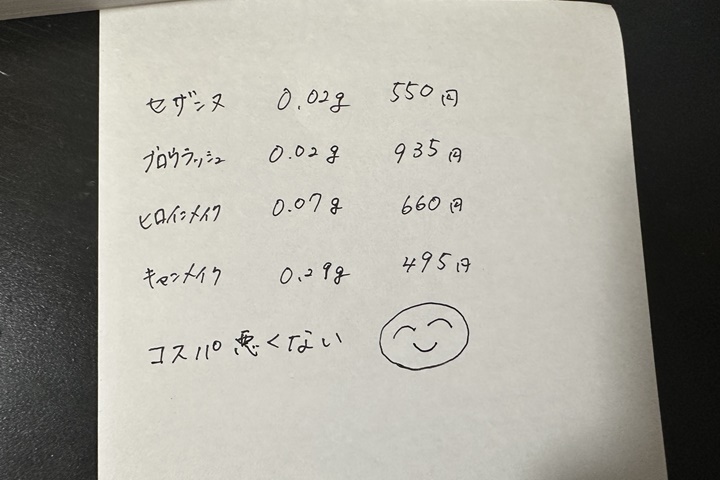 セザンヌ 0.02g 550円
ブロウラッシュ 0.02g 935円
ヒロインメイク 0.07g 660円
キャンメイク 0.29g 495円
コスパ悪くない